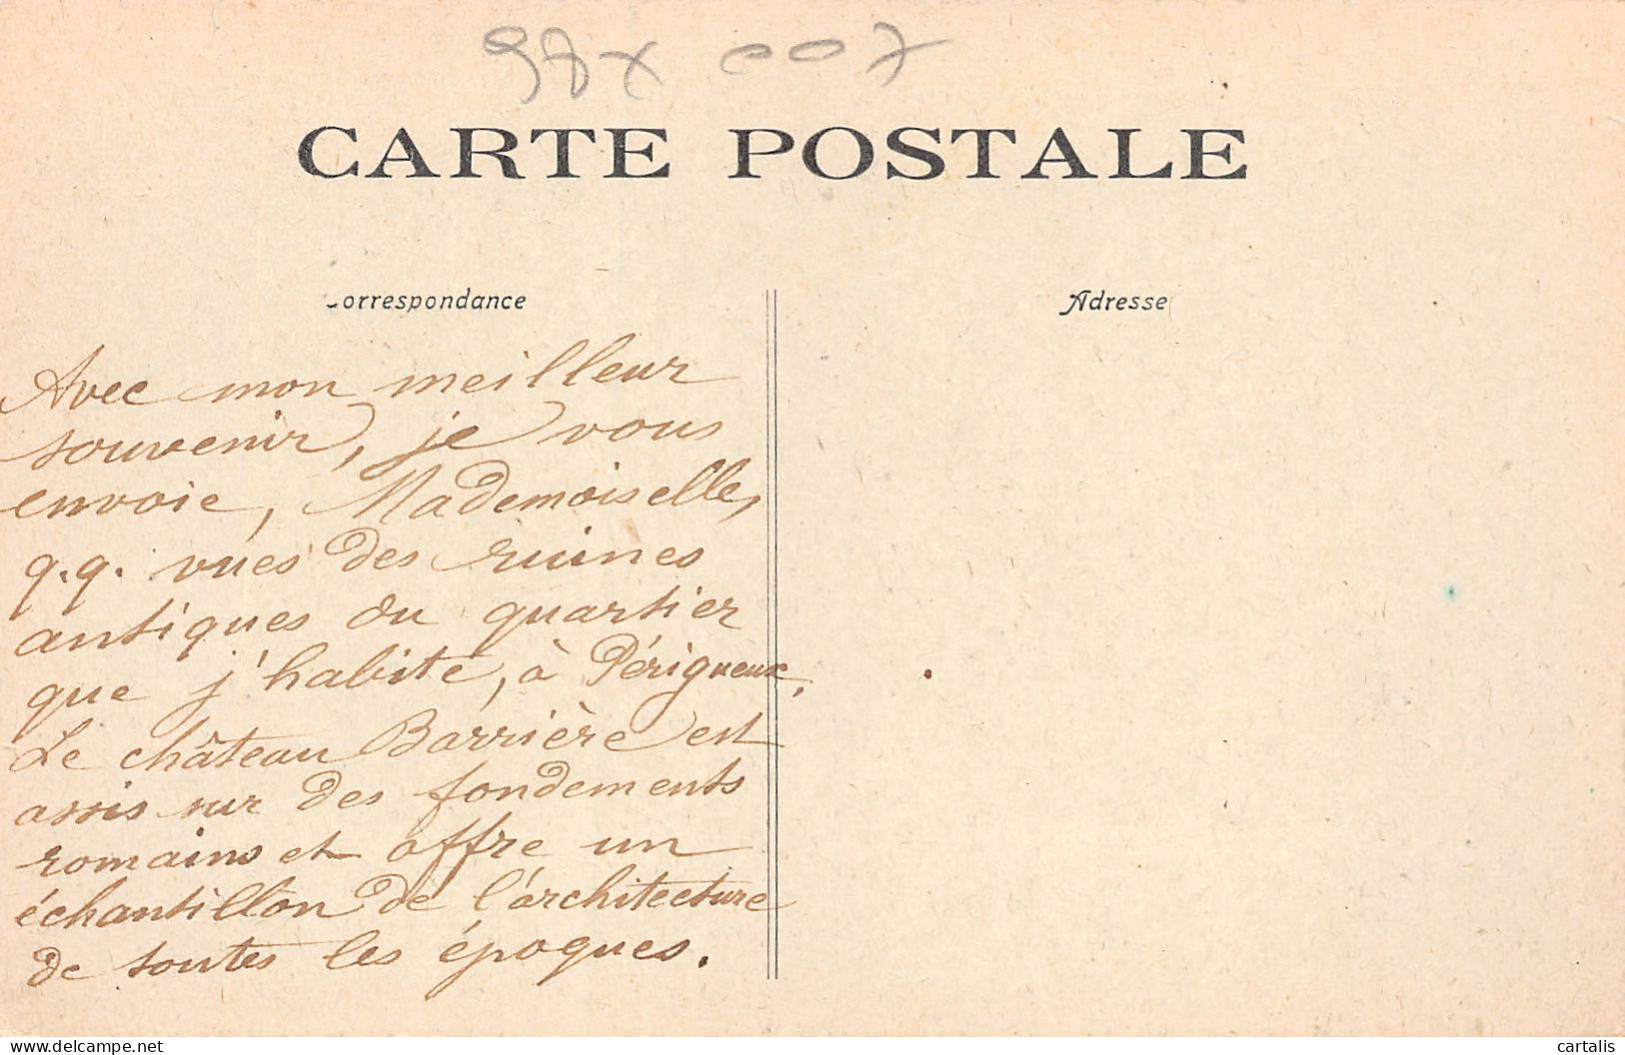 CARTE POSTALE
Correspondance
Adresse
Avec mon meilleur
souvenir, je vous
envoie, Mademoiselle,
q.q. vues des ruines
antiques du quartier
que j'habite, à Périgueux.
Le château Barrière est
assis sur des fondements
romains et offre un
échantillon de l'architecture
de toutes les époques.
delcampe.net
cartalis